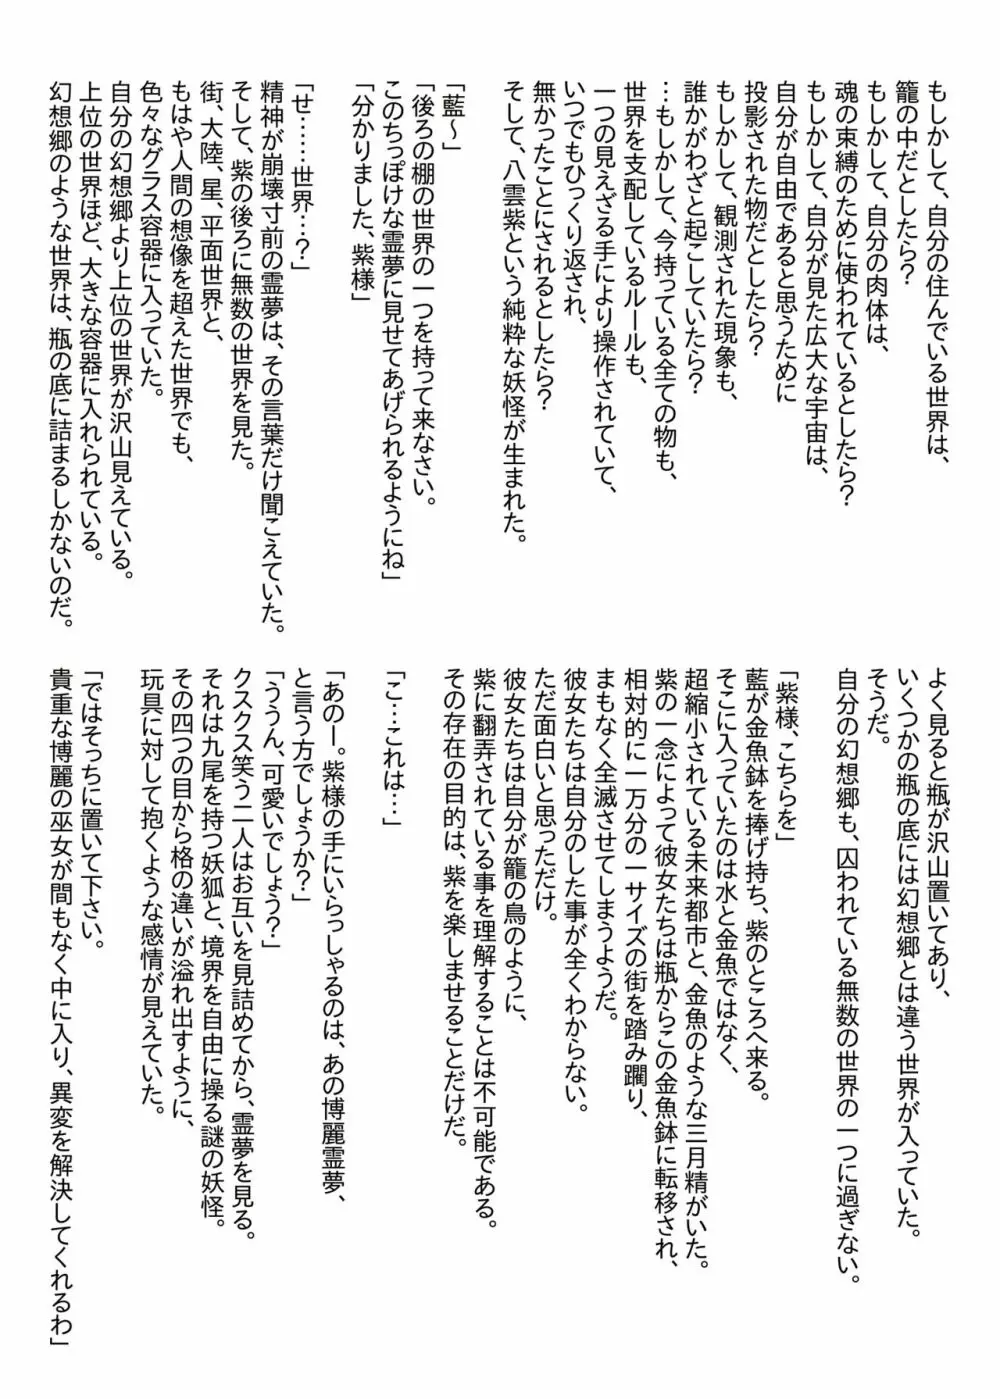 もしかして、自分の住んでいる世界は、
籠の中だとしたら？
もしかして、自分の肉体は、
魂の束縛のために使われているとしたら？
もしかして、自分が見た広大な宇宙は、
自分が自由であると思うために
投影された物だとしたら？
もしかして、観測された現象も、
誰かがわざと起こしていたら？
…もしかして、今持っている全ての物も、
世界を支配しているルールも、
一つの見えざる手により操作されていて、
いつでもひっくり返され、
無かったことにされるとしたら？
そして、八雲紫という純粋な妖怪が生まれた。
「藍～」
「後ろの棚の世界の一つを持って来なさい。
このちっぽけな霊夢に見せてあげられるようにね」
「分かりました、紫様」
「せ……世界…？」
精神が崩壊寸前の霊夢は、その言葉だけ聞こえていた。
そして、紫の後ろに無数の世界を見た。
街、大陸、星、平面世界と、
もはや人間の想像を超えた世界でも、
色々なグラス容器に入っていた。
自分の幻想郷より上位の世界が沢山見えている。
上位の世界ほど、大きな容器に入れられている。
幻想郷のような世界は、瓶の底に詰まるしかないのだ。
よく見ると瓶が沢山置いてあり、
いくつかの瓶の底には幻想郷とは違う世界が入っていた。
そうだ。
自分の幻想郷も、囚われている無数の世界の一つに過ぎない。
「紫様、こちらを」
藍が金魚鉢を捧げ持ち、紫のところへ来る。
そこに入っていたのは水と金魚ではなく、
超縮小されている未来都市と、金魚のような三月精がいた。
紫の一念によって彼女たちは瓶からこの金魚鉢に転移され、
相対的に一万分の一サイズの街を踏み躙り、
まもなく全滅させてしまうようだ。
彼女たちは自分のした事が全くわからない。
ただ面白いと思っただけ。
彼女たちは自分が籠の鳥のように、
紫に翻弄されている事を理解することは不可能である。
その存在の目的は、紫を楽しませることだけだ。
「こ…これは…」
「あのー。紫様の手にいらっしゃるのは、あの博麗霊夢、
と言う方でしょうか？」
「ううん、可愛いでしょう？」
クスクス笑う二人はお互いを見詰めてから、霊夢を見る。
それは九尾を持つ妖狐と、境界を自由に操る謎の妖怪。
その四つの目から格の違いが溢れ出すように、
玩具に対して抱くような感情が見えていた。
「ではそっちに置いて下さい。
貴重な博麗の巫女が間もなく中に入り、異変を解決してくれるわ」